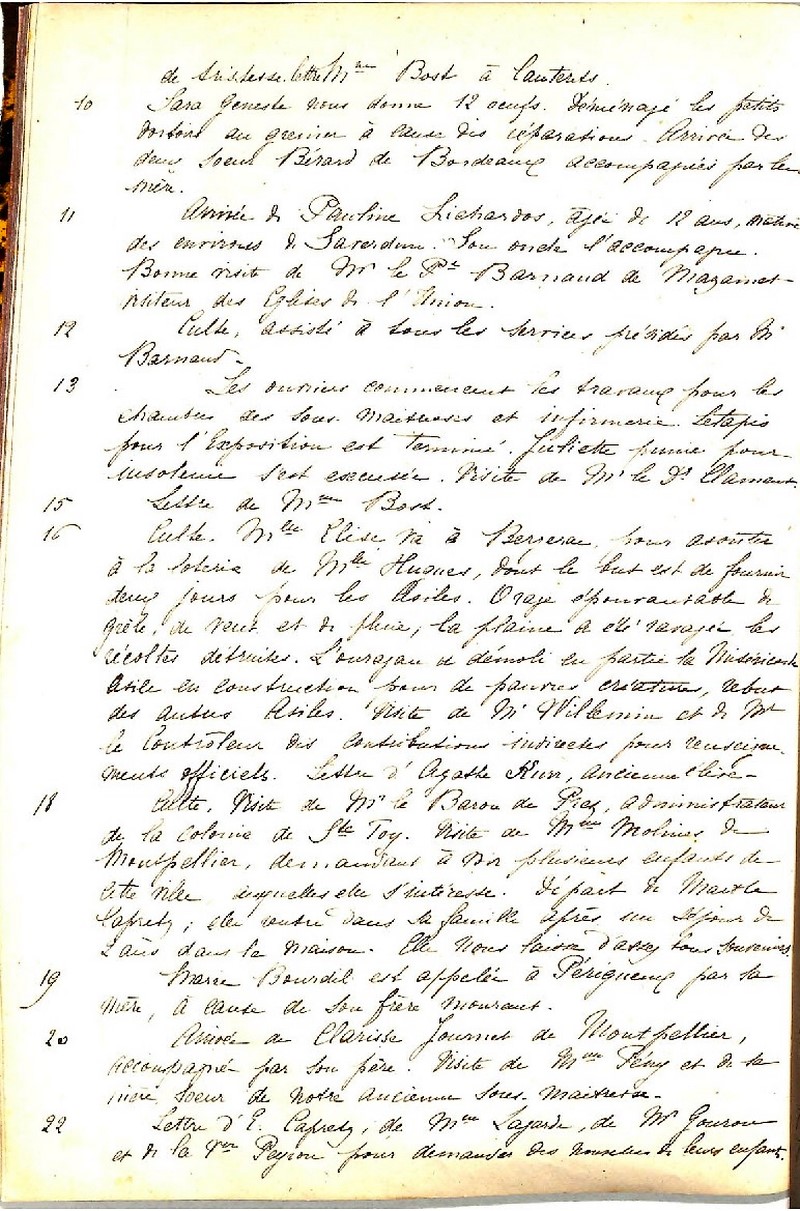 de tristesse. lettre Mme Bost à Cauterets.
10 Sara Geneste nous donne 12 oeufs. Déménagé les petits
dortoirs au grenier à cause des réparations. Arrivée des
deux soeur Bérard de Bordeaux accompagnées par leur
mère.
11 Arrivée de Pauline Lichardos, âgée de 12 ans, native
des environs de Saverdun. Son oncle l'accompagne.
Bonne visite de Mr le Pr Barnaud de Mazamet
visiteur des Eglises de l'Union.
12 Culte, assisté à tous les services présidés par Mr
Barnaud.
13 Les ouvriers commencent les travaux pour les
chambres des sous-maitresses et infirmerie. Le tapis
pour l'Exposition est terminé. Juliette punie pour
insolence s'est excusée. Visite de Mr le Dr Clament.
15 Lettre de Mme Bost.
16 Culte. Mlle Elise va à Bergerac, pour assister
à la loterie de Mlle Hugues, dont le but est de fournir
deux jours pour les Asiles. Orage épouvantable de
grêle, de vent et de pluie, la plaine a été ravagée les
récoltes détruites. L'ouragan a démoli en partie la Miséricorde
Asile en construction pour de pauvres créatures, rebut
des autres Asiles. Visite de Mr Villemin et de Mr
le Contrôleur des Contributions indirectes pour renseigne-
ments officiels. Lettre d'Agathe, ancienne élève.
18 Culte, Visite de Mr le Baron de, administrateur
de la Colonie de Ste Foy. Visite de Mme Molines de
Montpellier, demandant à voir plusieurs enfants de
cette ville auxquelles elle s'intéresse. Départ de Marthe
Cafretz; elle rentre dans sa famille après un séjour de
2 ans dans la maison. Elle nous laisse d'assez bons souvenirs.
19 Marie Bourdil est appelée à Périgueux par sa
mère, à cause de son frère mourant.
20 Arrivée de Clarisse Journet de Montpellier,
accompagné par son père. Visite de Mme et de sa
mère, soeur de notre ancienne sous-maitresse.
22 Lettre d'E. Cafretz, de Mme Lagarde, de Mr Gourou
et de la Vve Peyrou pour demander des nouvelles de leurs enfants.